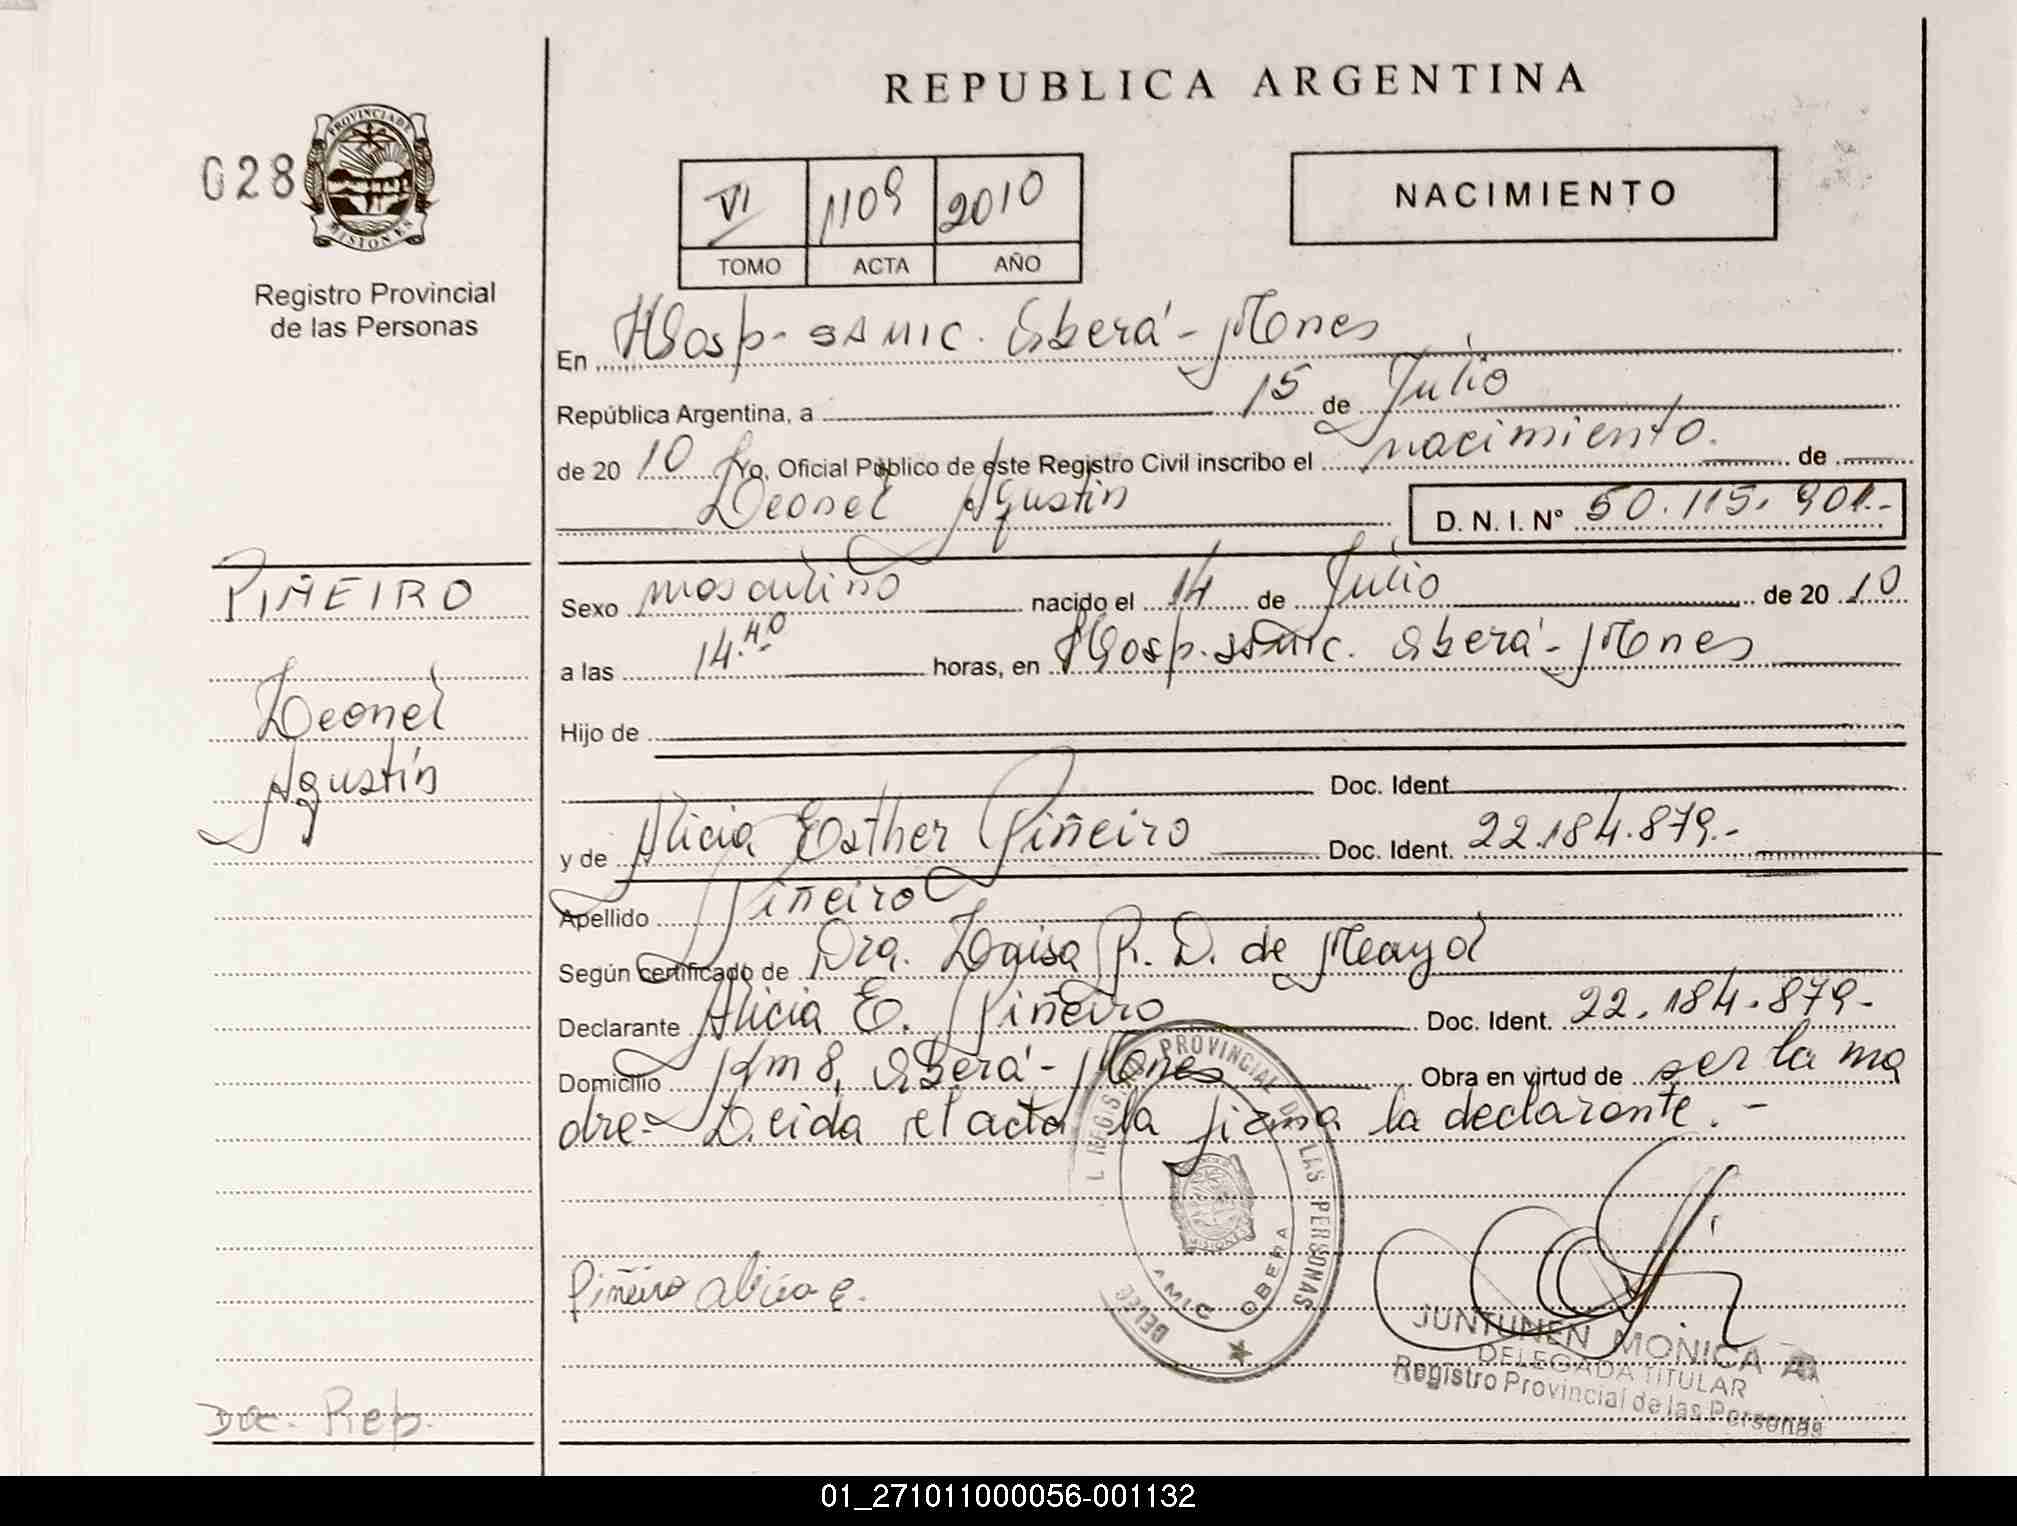 REPUBLICA ARGENTINA
028
PROVINCIA DE
MISIONES
Registro Provincial
de las Personas
VI 1109 2010
TOMO ACTA AÑO
NACIMIENTO
En Hosp. SAMIC. Oberá - Mones
República Argentina, a 15 de Julio
de 20 10 Yo, Oficial Público de este Registro Civil inscribo el nacimiento. de
Leonel Agustín
D. N. I. N° 50.115.901.-
PIÑEIRO
Leonel
Agustín
Sexo masculino nacido el 14 de Julio de 20 10
a las 14.40 horas, en Hosp. SAMIC. Oberá - Mones
Hijo de
Doc. Ident.
y de Alicia Esther Piñeiro Doc. Ident. 22.184.879.-
Apellido Piñeiro
Según certificado de Dra. Luisa R. D. de Mayol
Declarante Alicia E. Piñeiro Doc. Ident. 22.184.879-
Domicilio Km 8, Oberá - Mones Obra en virtud de ser la ma
dre- Leida el acta la firma la declarante. -
REGISTRO PROVINCIAL DE LAS PERSONAS
DELEG
AMIC OBERA
Piñeiro Alicia E.
JUNTUNEN MONICA
DELEGADA TITULAR
Registro Provincial de las Personas
Doc. Rep.
01_271011000056-001132